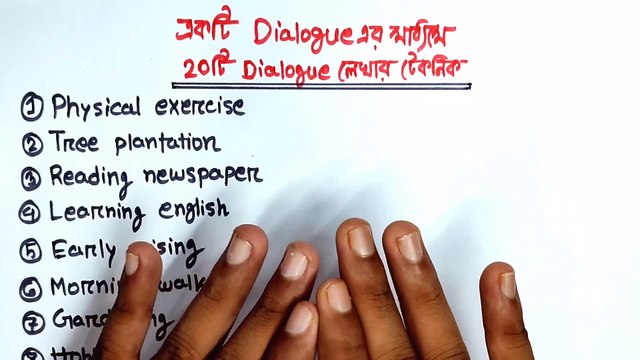 একটি Dialogue এর মাধ্যমে
20টি Dialogue লেখার টেকনিক
① Physical exercise
② Tree plantation
③ Reading newspaper
④ Learning english
⑤ Early
⑥ Morning walk
⑦
⑧